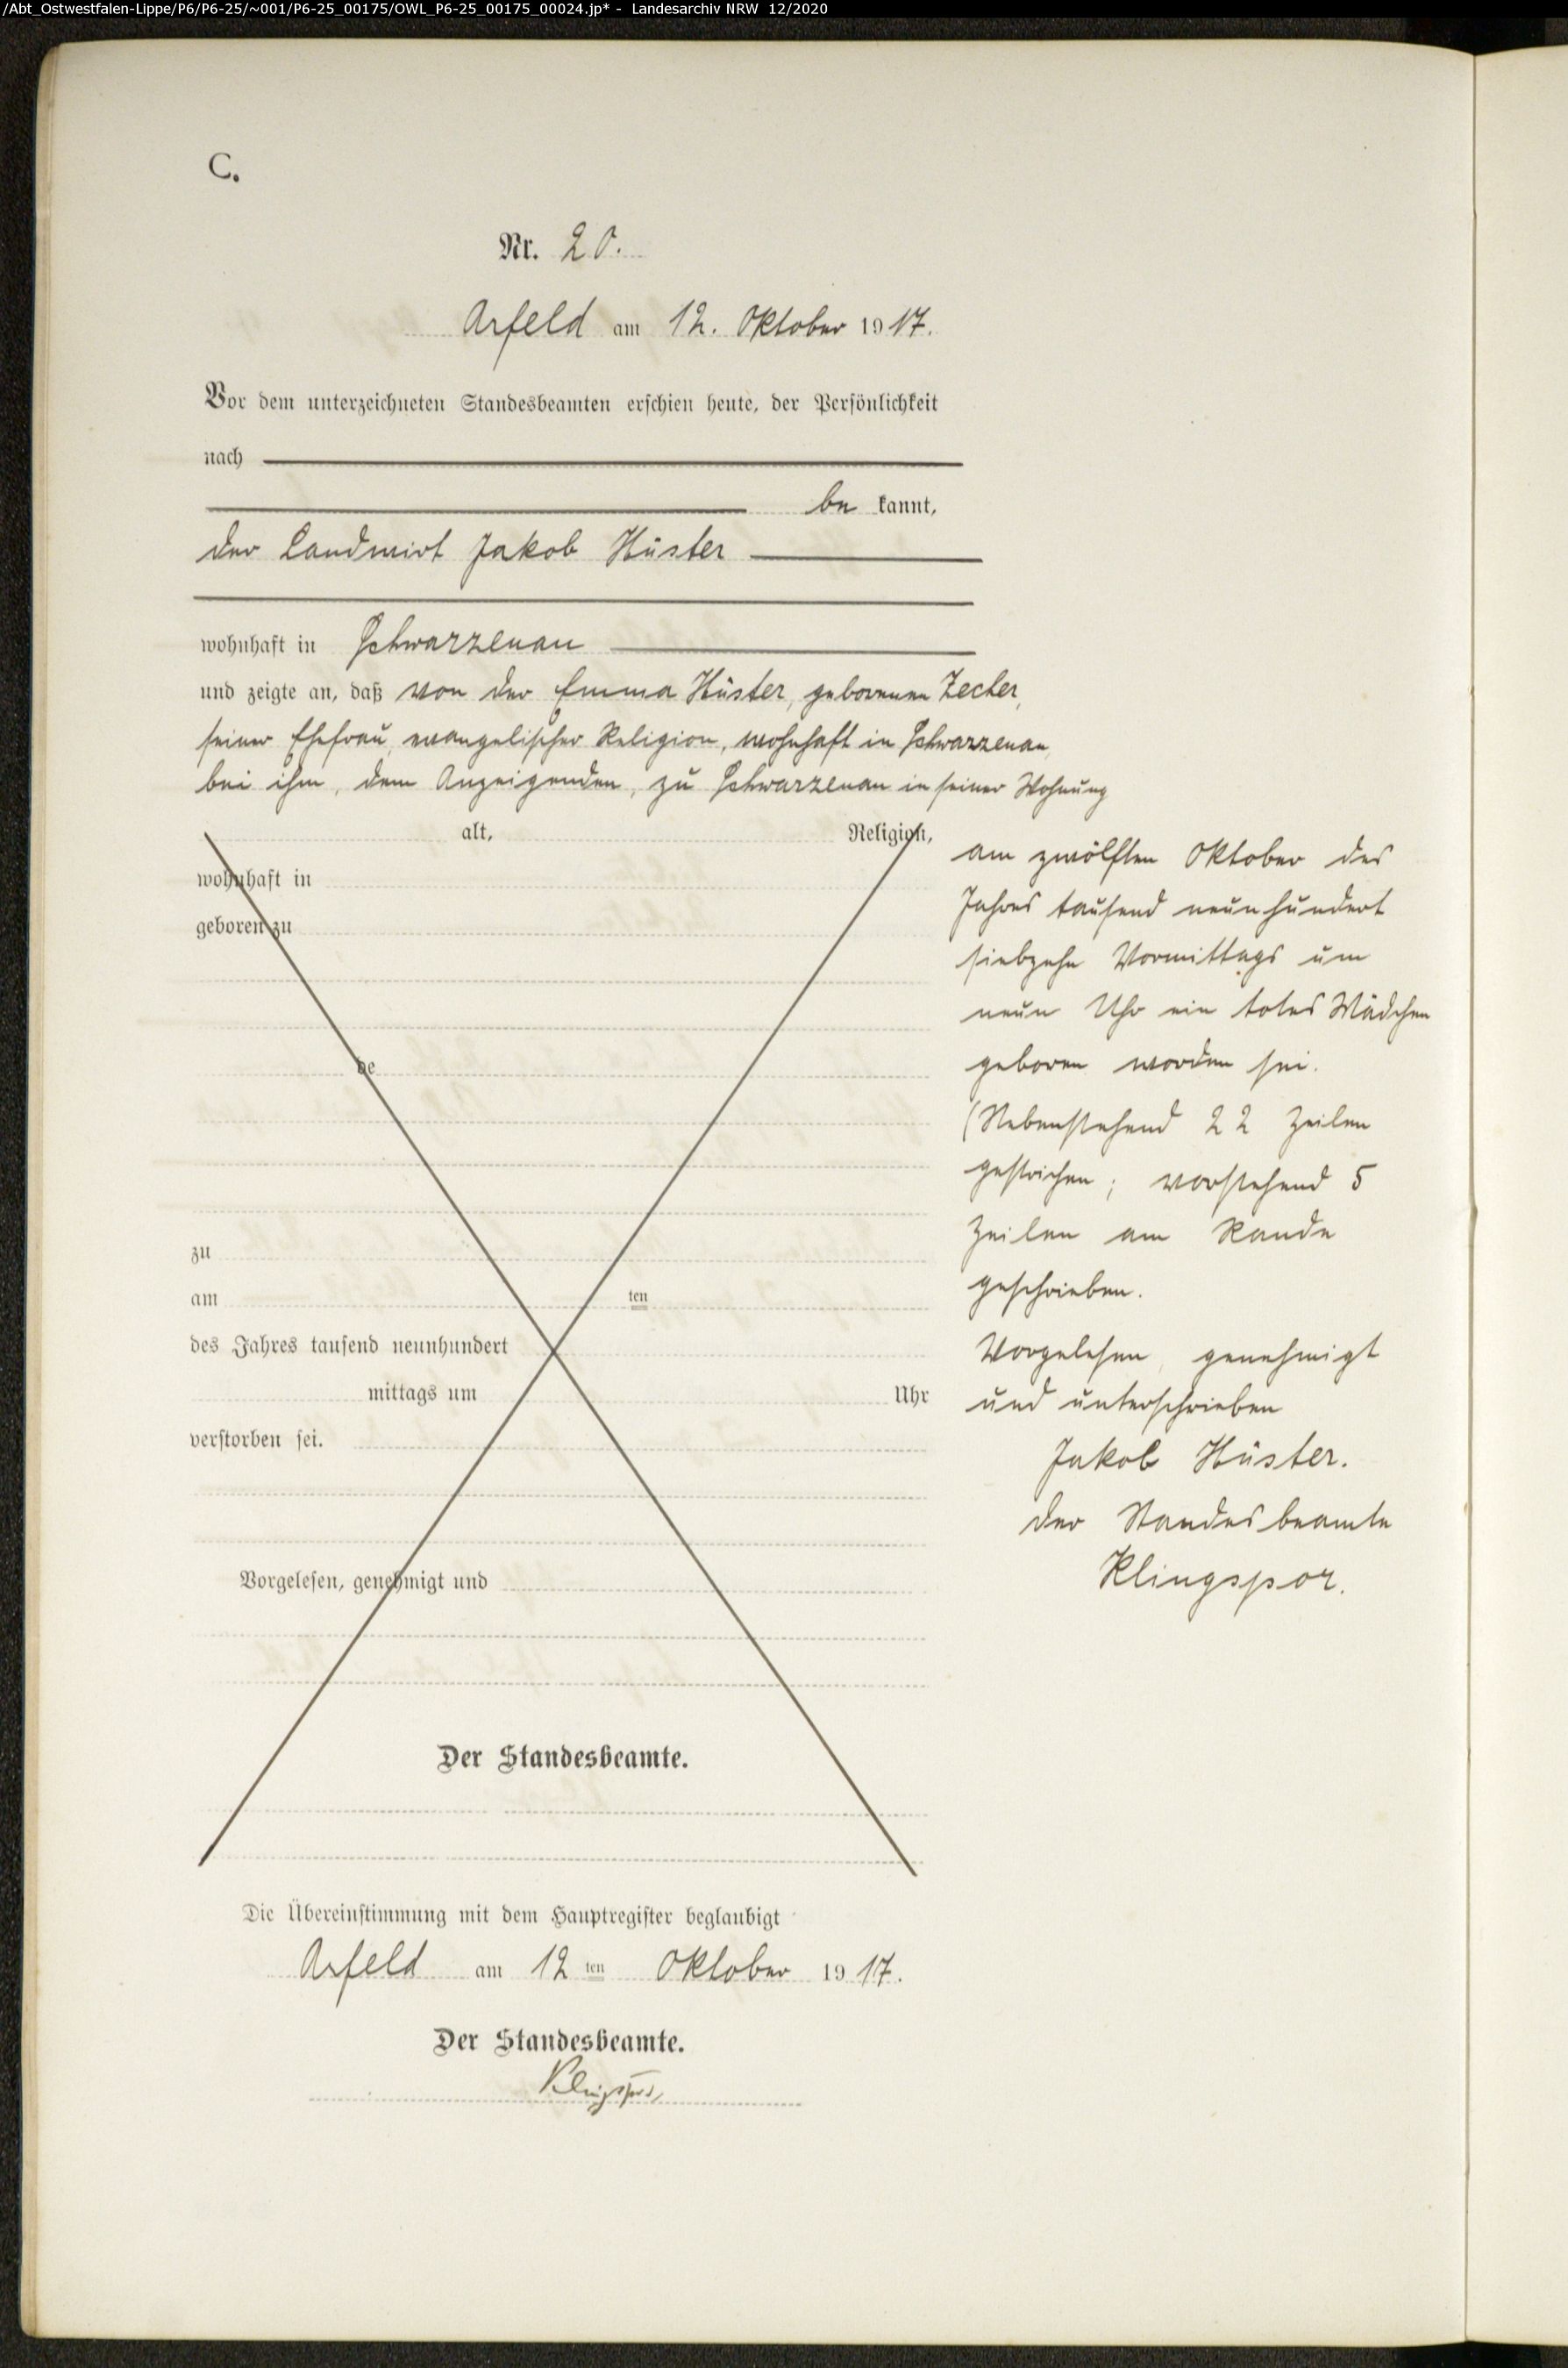 /Abt_Ostwestfalen-Lippe/P6/P6-25/~001/P6-25_00175/OWL_P6-25_00175_00024.jp* - Landesarchiv NRW 12/2020
C.
Nr. 20.
Arfeld am 12. Oktober 1917.
Vor dem unterzeichneten Standesbeamten erschien heute, der Persönlichkeit
nach
be kannt,
der Landwirt Jakob Hüster
wohnhaft in Schwarzenau
und zeigte an, daß von der Emma Hüster, geborenen Zecher,
seiner Ehefrau, evangelischer Religion, wohnhaft in Schwarzenau,
bei ihm, dem Anzeigenden, zu Schwarzenau in seiner Wohnung
alt, Religion,
wohnhaft in
geboren zu
be
zu
am ten
des Jahres tausend neunhundert
mittags um Uhr
verstorben sei.
Vorgelesen, genehmigt und
Der Standesbeamte.
am zwölften Oktober des
Jahres tausend neunhundert
siebzehn Vormittags um
neun Uhr ein totes Mädchen
geboren worden sei.
(Nebenstehend 22 Zeilen
gestrichen; vorstehend 5
Zeilen am Rande
geschrieben.
Vorgelesen, genehmigt
und unterschrieben
Jakob Hüster.
der Standesbeamte
Klingspor.
Die Übereinstimmung mit dem Hauptregister beglaubigt
Arfeld am 12 ten Oktober 1917.
Der Standesbeamte.
Klingspor